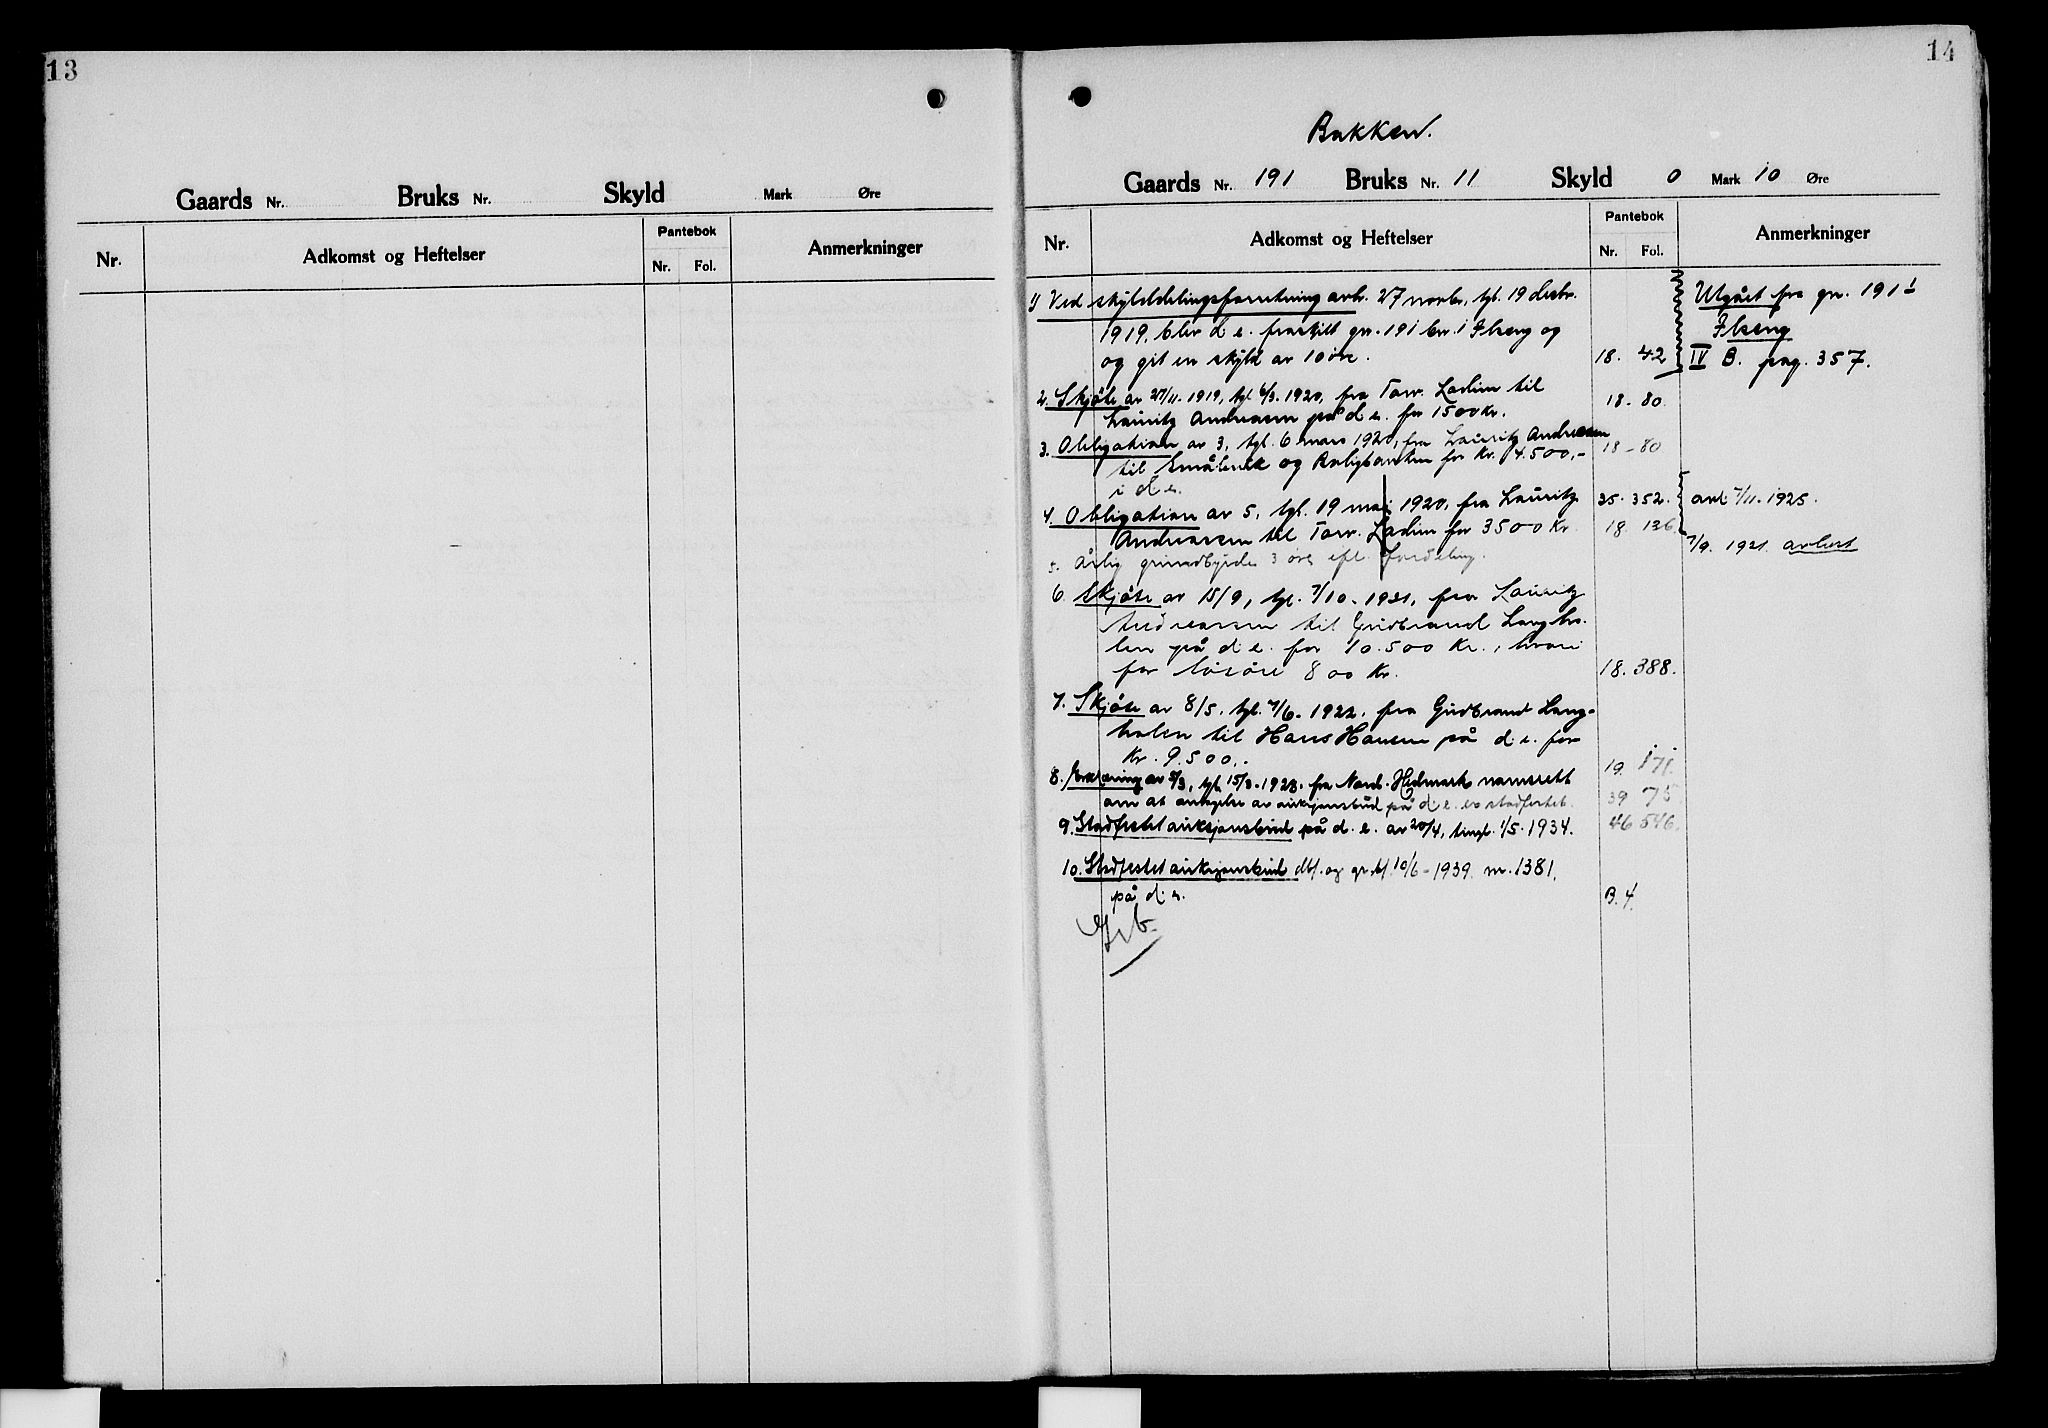 13
Gaards Nr. Bruks Nr. Skyld Mark Øre
Nr. Adkomst og Heftelser Pantebok Anmerkninger
Nr. Fol.
14
Bakken.
Gaards Nr. 191 Bruks Nr. 11 Skyld 0 Mark 10 Øre
Nr. Adkomst og Heftelser Pantebok Anmerkninger
Nr. Fol.
1) Ved skylddelingsforretning avh. 27 novbr, tgl. 19 desbr. Utgået fra gn. 191 1
1919, blev d. e. fraskilt gn. 191 bn. 1 Ilseng og Ilseng
og git en skyld av 10 öre. 18. 42 IV B. pag. 357.
2. Skjöte av 27/11. 1919, tgl. 6/3. 1920, fra Torv. Ladim til 18 - 80.
Lauritz Andreasen på d. e. for 1500 Kr.
3. Obligation av 3, tgl. 6 mars 1920, fra Lauritz Andreasen 18 - 80
til Småbruk og Boligbanken for Kr. 4.500,-
i d. e. 35. 352. avl 7/11. 1925.
4. Obligation av 5, tgl. 19 mai 1920, fra Lauritz
Andreassen til Torv. Ladim for 3500 Kr 18. 136. 7/9. 1921. avlest
5. Årlig grundbyrde 3 öre efl. fordeling.
6. Skjöte av 15/9, tgl. 7/10. 1921, fra Lauritz
Andreassen til Gudbrand Langho-
len på d. e. for 10.500 Kr., hvori
for lösöre 800 Kr. 18. 388.
7. Skjöte av 8/5, tgl. 7/6. 1922. fra Gudbrand Lang-
holen til Hans Hansen på d. e. for
Kr. 9.500,- 19. 171.
8. Erklæring av 8/3, tgl. 15/3. 1928. fra Nord. Hedmark namsrett
om at antagelse av auksjonsbud på d. e. er stadfestet. 39 75
9. Stadfestet auksjonsbud på d. e. av 20/4, tingl. 1/5. 1934. 46 546.
10. Stadfestet auksjonsbud dbf. og gr. bf. 10/6 - 1939. nr. 1381,
på d. e. B. 4.